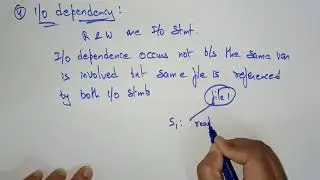 ④ I/o dependency:
R & W are I/o stmt.
I/o dependence occurs not b/s the same var
is involved int same file is referenced
by both I/o stmts
file 1
S₁: read